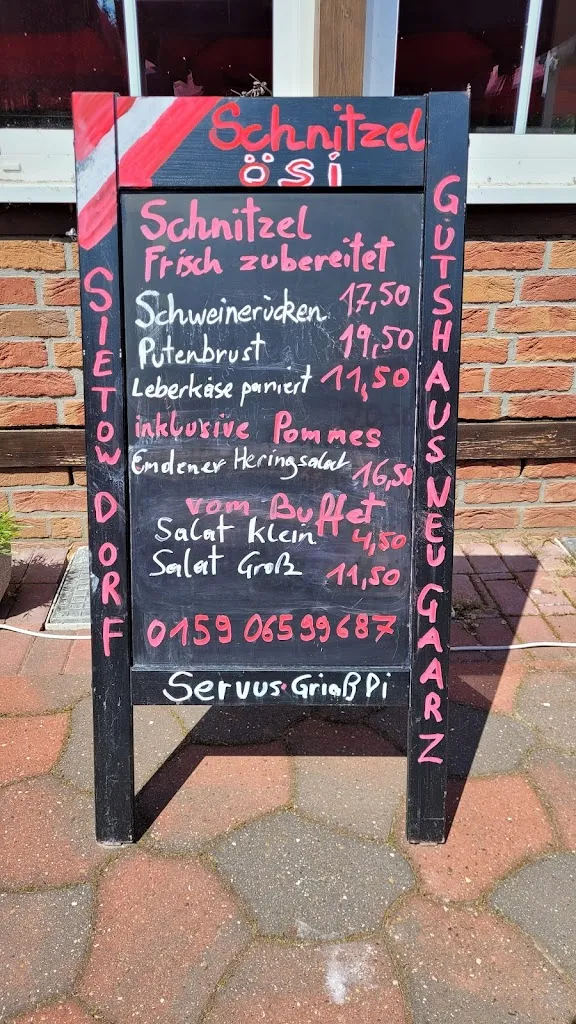 Schnitzel
ösi
Schnitzel
Frisch zubereitet
Schweinerücken 17,50
Putenbrust 19,50
Leberkäse paniert 11,50
inklusive Pommes
Emdener Heringsalat 16,50
vom Buffet
Salat klein 4,50
Salat Groß 11,50
0159 06599687
Servus·Griaß Di
SIETOW DORF
GUTSHAUS NEU GAARZ